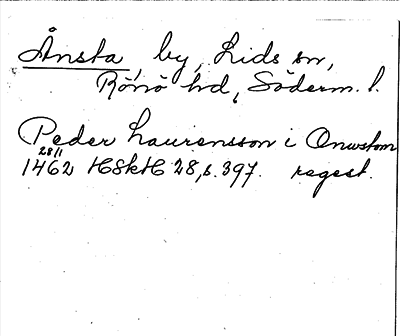 Ånsta, by, Lids sn,
Rönö hd, Söderm. l.
Peder Laurensson i Onustom
28/1
1462 HSkH 28, s. 397. regest.